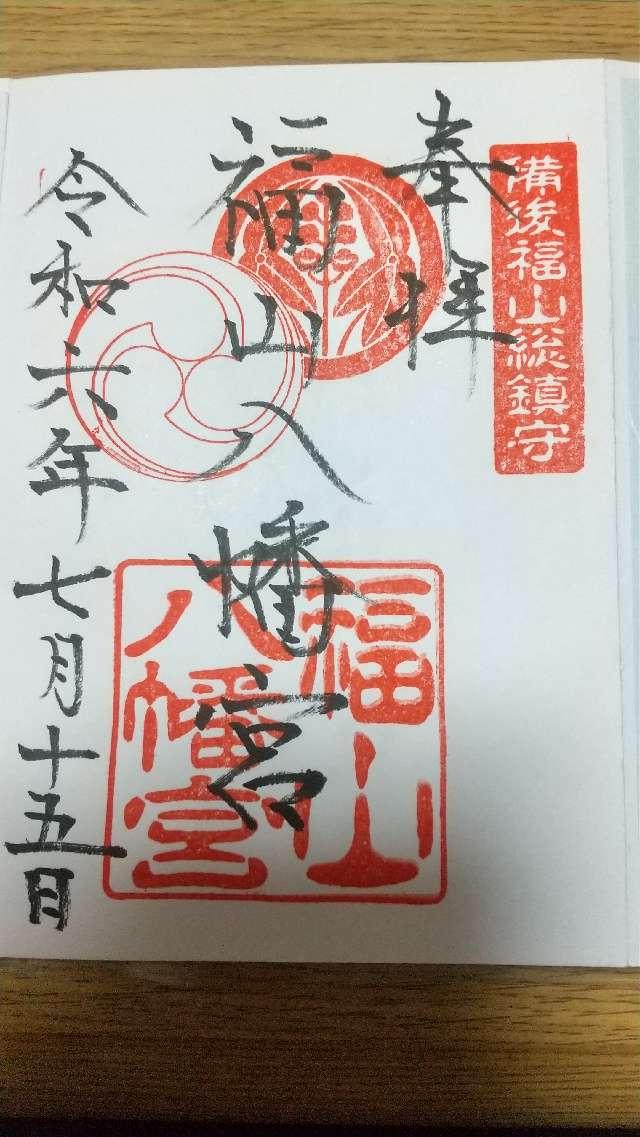 備後福山総鎮守
奉拝
福山八幡宮
令和六年七月十五日
福山
八幡宮